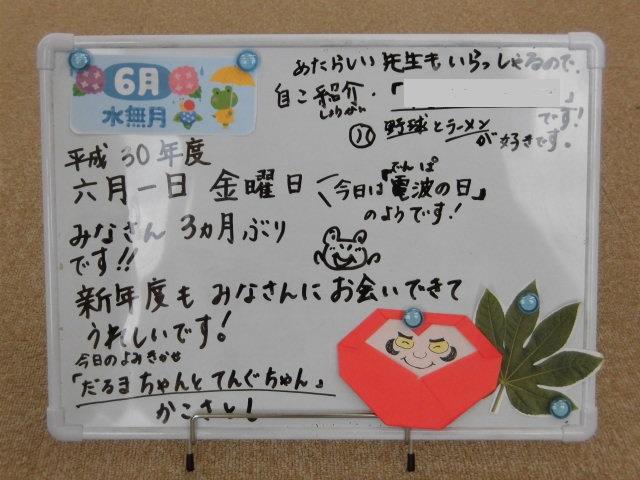 6月
水無月
あたらしい先生もいらっしゃるので、
自こ紹介・「 」
しょうかい
です!
野球とラーメン
が好きです。
平成30年度
六月一日 金曜日
でんぱ
今日は「電波の日」
のようです!
みなさん 3ヵ月ぶり
です!!
新年度も みなさんに お会いできて
うれしいです!
今日のよみきかせ
「だるまちゃんと てんぐちゃん」
かこさとし